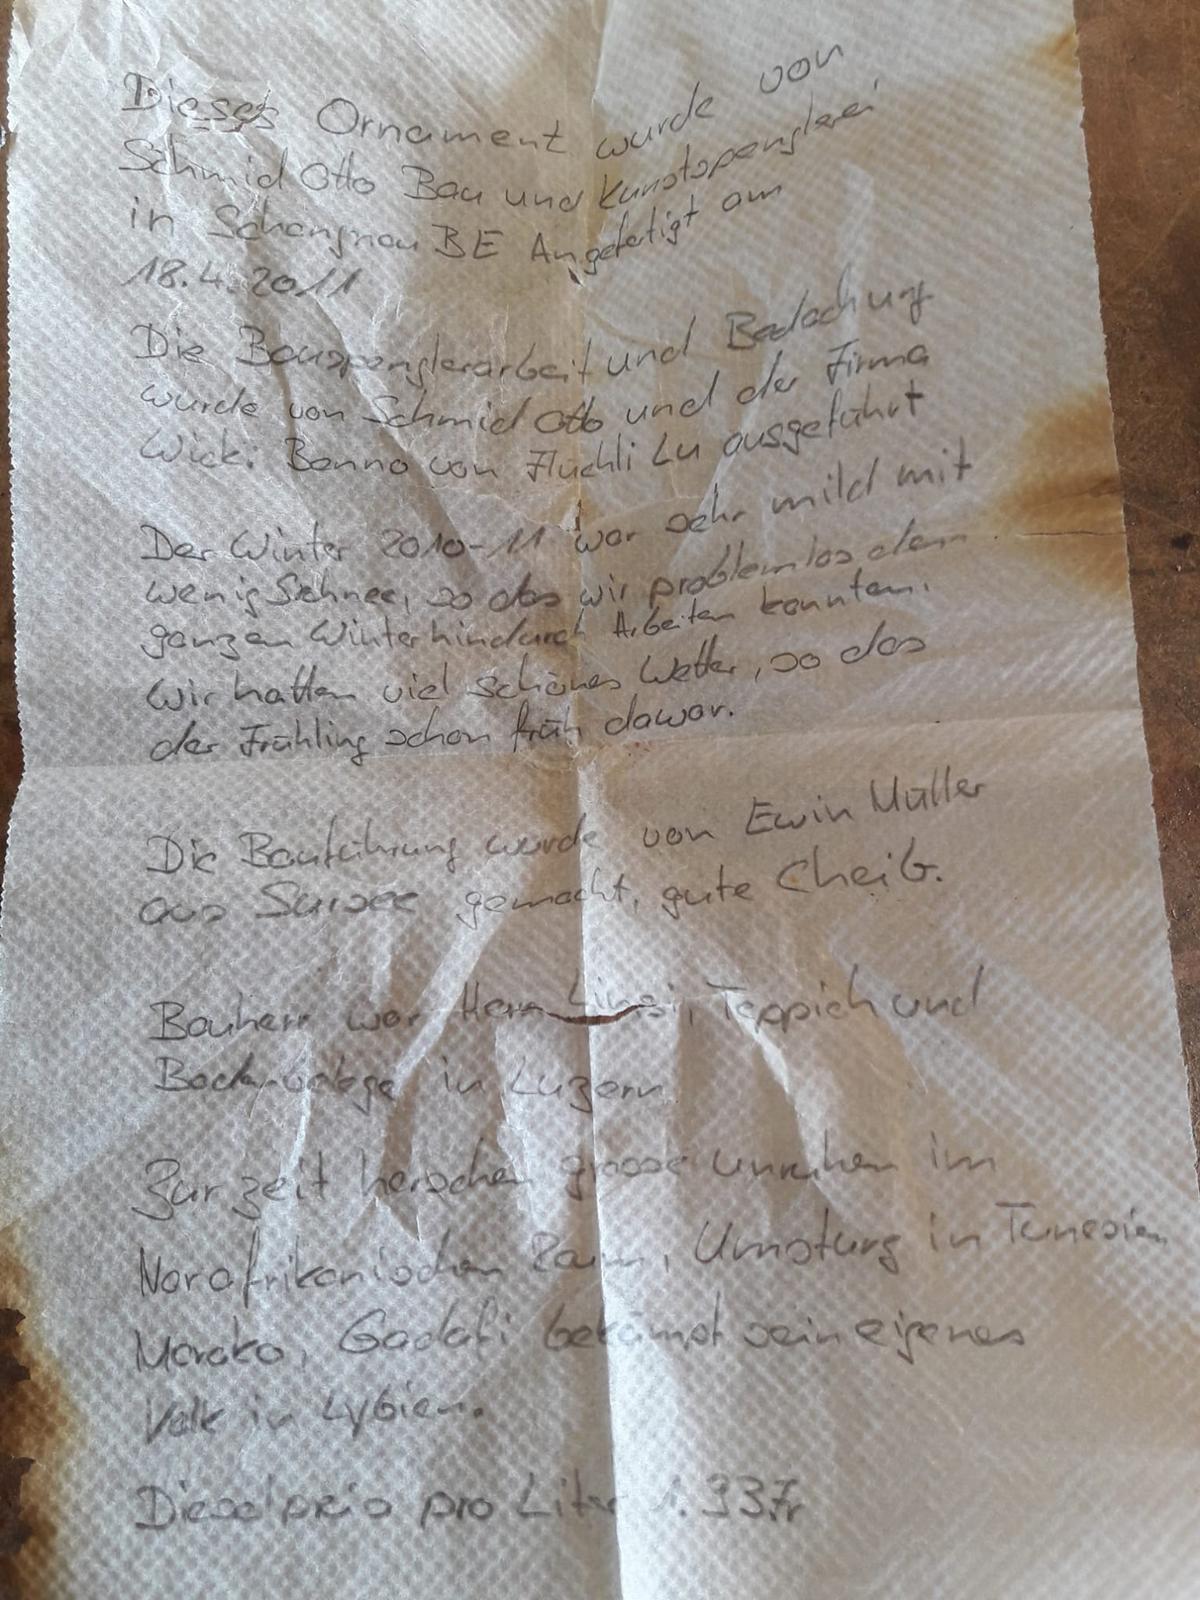 Dieses Ornament wurde von
Schmid Otto Bau und Kunstspenglerei
in Schangnau BE Angefertigt am
18.4.2011
Die Bauspenglerarbeit und Bedachung
wurde von Schmid Otto und der Firma
Wicki Benno von Flüehli Lu ausgeführt
Der Winter 2010-11 war sehr mild mit
wenig Schnee, so das wir problemlos den
ganzen Winter hindurch Arbeiten konnten.
Wir hatten viel schönes Wetter, so das
der Frühling schon früh dawar.
Die Bauführung wurde von Ewin Müller
aus Sursee gemacht, gute Cheib.
Bauherr war Herr Linsi, Teppich und
Bodenbeläge in Luzern
Zur zeit herschen grosse unruhen im
Norafrikanischen Raum, Umsturz in Tunesien
Maroko, Gadafi bekämpft sein eigenes
Volk in Lybien.
Dieselpreis pro Liter 1.93 Fr